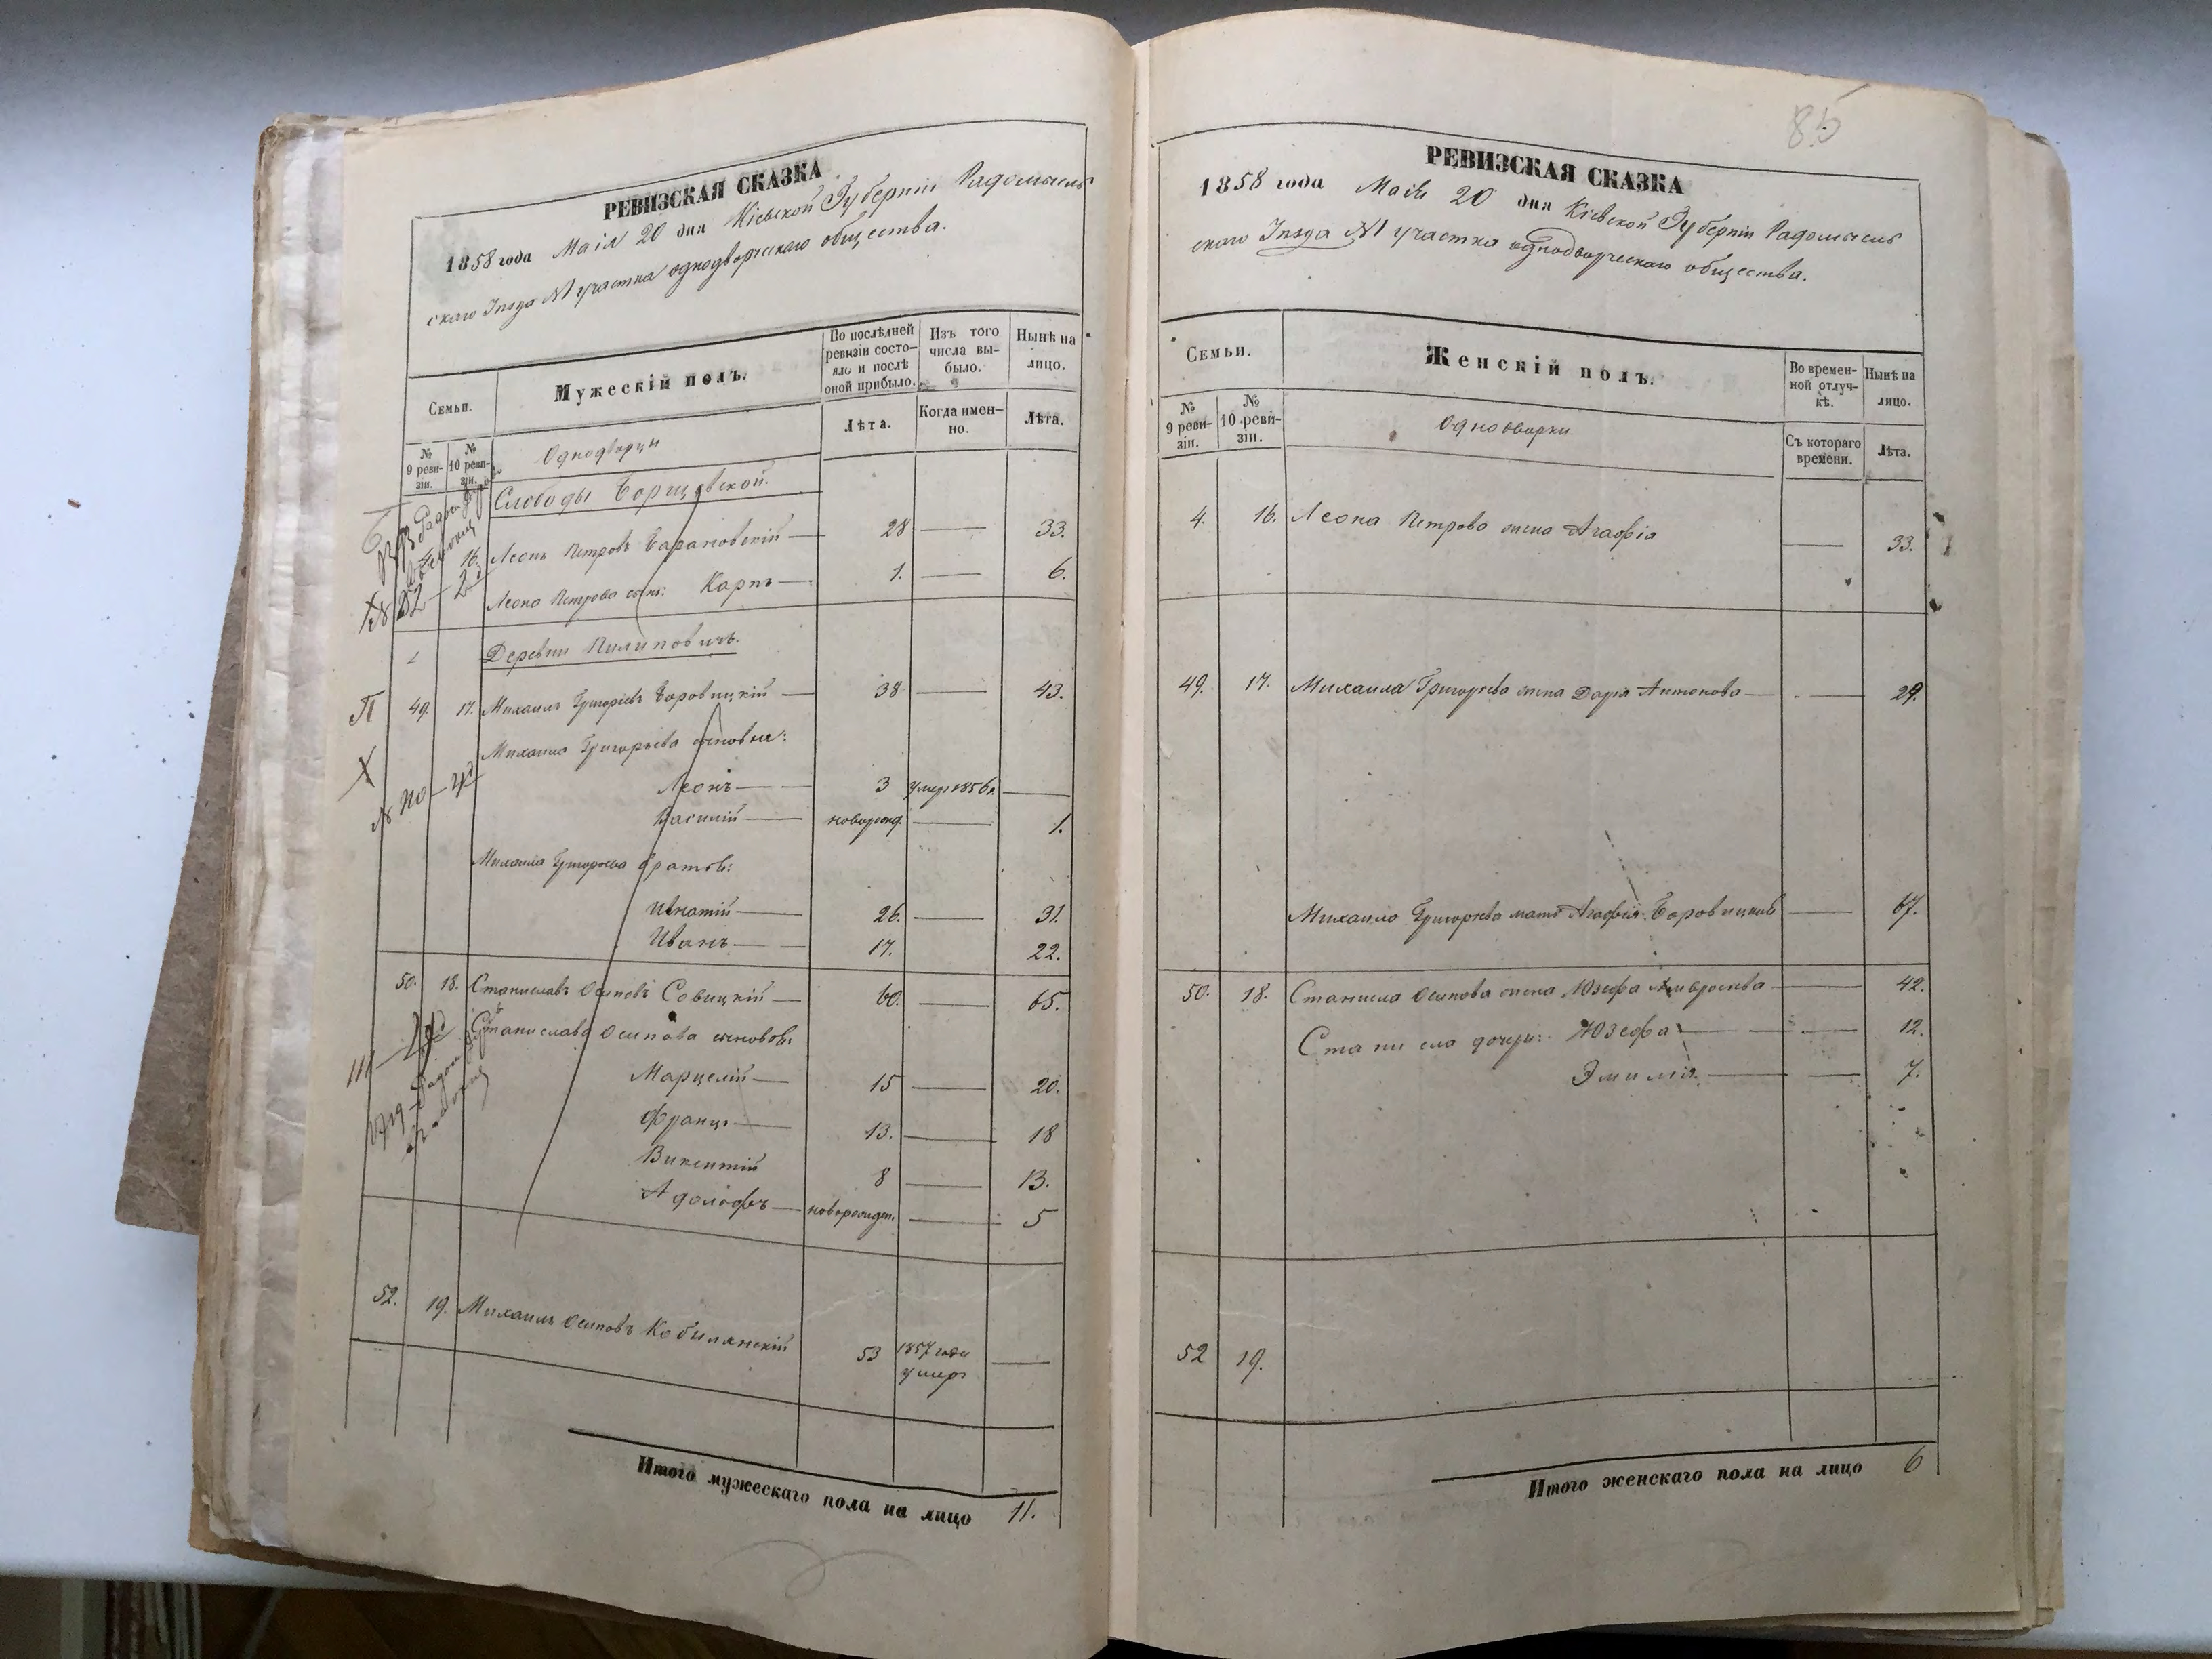 РЕВИЗСКАЯ СКАЗКА
1858 года Маія 20 дня Кіевской Губерніи Радомысль
скаго Уѣзда №1 участка однодворческаго общества.
Семьи.
Мужескій полъ.
По послѣдней ревизіи состо-
яло и послѣ
оной прибыло.
Изъ того
числа вы-
было.
Нынѣ на
лицо.
№
9 реви-
зіи.
№
10 реви-
зіи.
Однодворцы
Лѣта.
Когда имен-
но.
Лѣта.
Слободы Борщовской.
4. 16. Леонъ Петровъ Барановскій — 28 — 33.
Леона Петрова сынъ: Карпъ — 1. — 6.
№ 52 — 2
Деревни Пилиповичъ.
П 49. 17. Михаилъ Григоріевъ Боровицкій — 38 — 43.
Х Михаила Григорьева сыновья:
Леонъ — 3 умеръ 1856 г. —
Василій — новорожд. — 1.
Михаила Григорьева братья:
Игнатій — 26. — 31.
Иванъ — 17. 22.
50. 18. Станиславъ Осиповъ Савицкій — 60. — 65.
Станислава Осипова сыновья:
Марцелій — 15 — 20.
Францъ — 13. — 18
Викентій 8 — 13.
Адольфъ — новорожден. — 5
52. 19. Михаилъ Осиповъ Кобилянскій 53 1857 года
умеръ —
Итого мужескаго пола на лицо 11.
85
РЕВИЗСКАЯ СКАЗКА
1858 года Маія 20 дня Кіевской Губерніи Радомысль
скаго Уѣзда №1 участка однодворческаго общества.
Семьи.
Женскій полъ.
Во времен-
ной отлуч-
кѣ.
Нынѣ на
лицо.
№
9 реви-
зіи.
№
10 реви-
зіи.
Однодворки
Съ котораго
времени.
Лѣта.
4. 16. Леона Петрова жена Агафія — 33.
49. 17. Михаила Григорьева жена Дарья Антонова — 29.
Михаила Григорьева мать Агафія Боровицкая — 67.
50. 18. Станисла Осипова жена Юзефа Амвросьева — 42.
Станисла дочери: Юзефа — 12.
Эмилія — 7.
52 19.
Итого женскаго пола на лицо 6